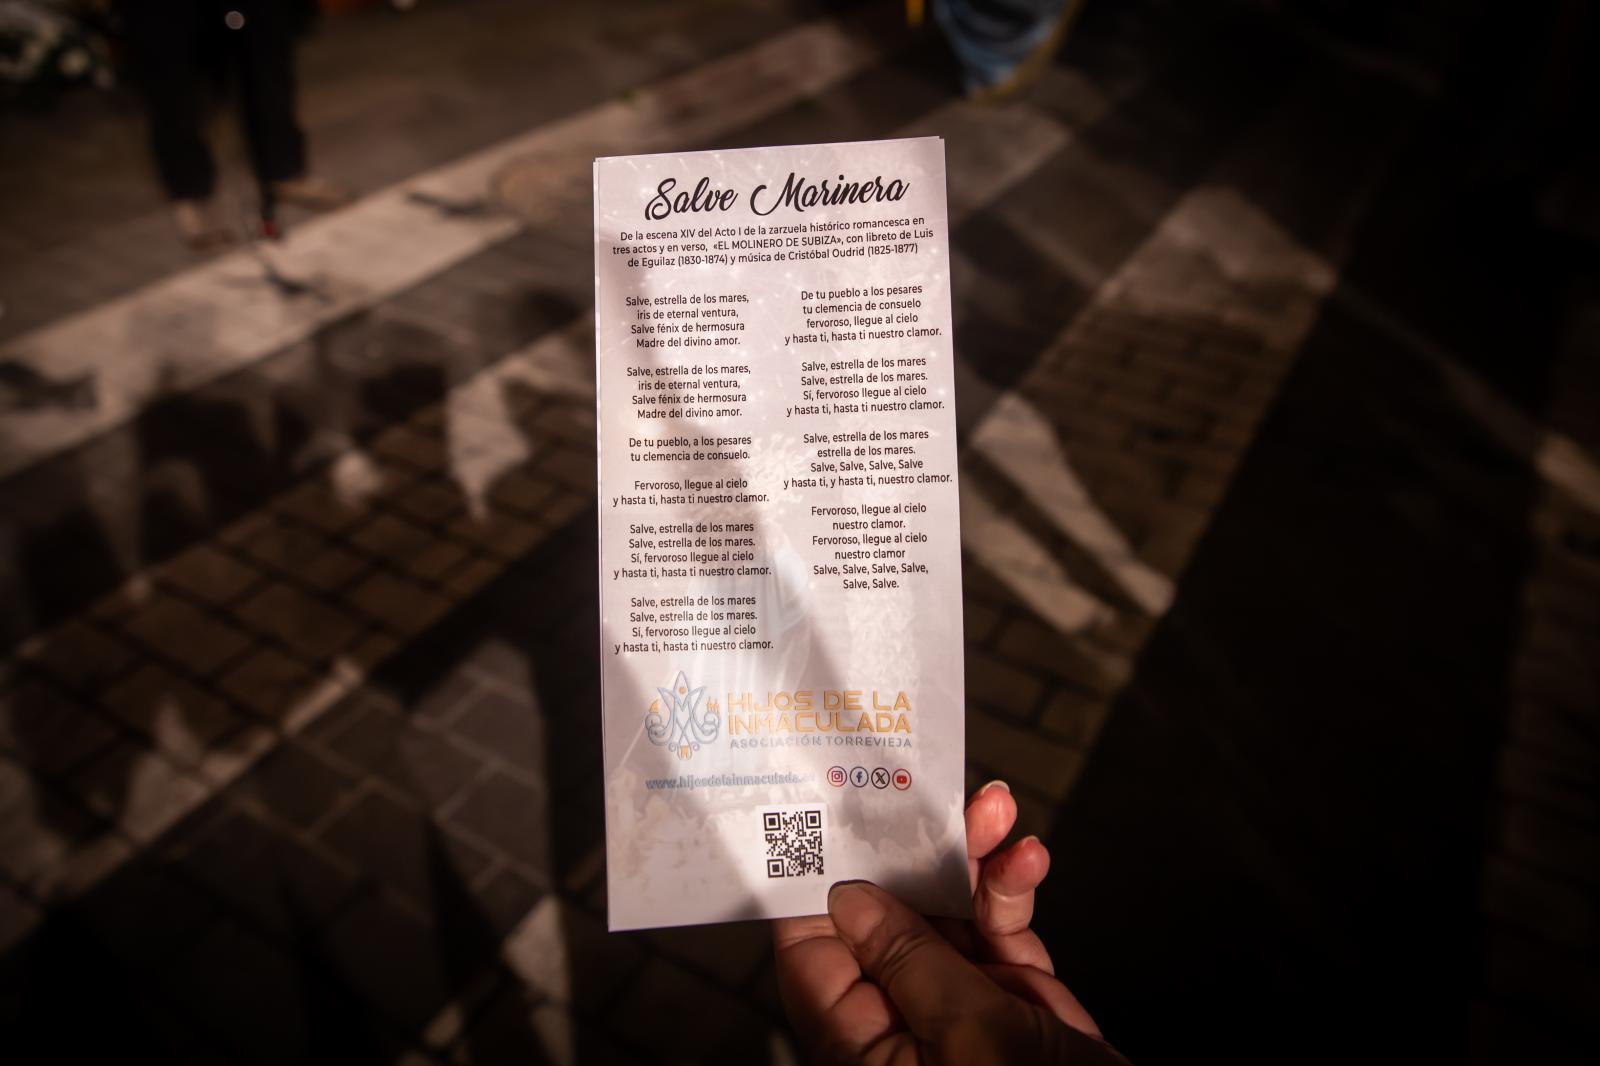 Salve Marinera
De la escena XIV del Acto I de la zarzuela histórico romancesca en
tres actos y en verso, «EL MOLINERO DE SUBIZA», con libreto de Luis
de Eguilaz (1830-1874) y música de Cristóbal Oudrid (1825-1877)
Salve, estrella de los mares,
iris de eternal ventura,
Salve fénix de hermosura
Madre del divino amor.
Salve, estrella de los mares,
iris de eternal ventura,
Salve fénix de hermosura
Madre del divino amor.
De tu pueblo, a los pesares
tu clemencia de consuelo.
Fervoroso, llegue al cielo
y hasta ti, hasta ti nuestro clamor.
Salve, estrella de los mares
Salve, estrella de los mares.
Sí, fervoroso llegue al cielo
y hasta ti, hasta ti nuestro clamor.
Salve, estrella de los mares
Salve, estrella de los mares.
Sí, fervoroso llegue al cielo
y hasta ti, hasta ti nuestro clamor.
De tu pueblo a los pesares
tu clemencia de consuelo
fervoroso, llegue al cielo
y hasta ti, hasta ti nuestro clamor.
Salve, estrella de los mares
Salve, estrella de los mares.
Sí, fervoroso llegue al cielo
y hasta ti, hasta ti nuestro clamor.
Salve, estrella de los mares
estrella de los mares.
Salve, Salve, Salve, Salve
y hasta ti, y hasta ti, nuestro clamor.
Fervoroso, llegue al cielo
nuestro clamor.
Fervoroso, llegue al cielo
nuestro clamor
Salve, Salve, Salve, Salve,
Salve, Salve.
HIJOS DE LA
INMACULADA
ASOCIACIÓN TORREVIEJA